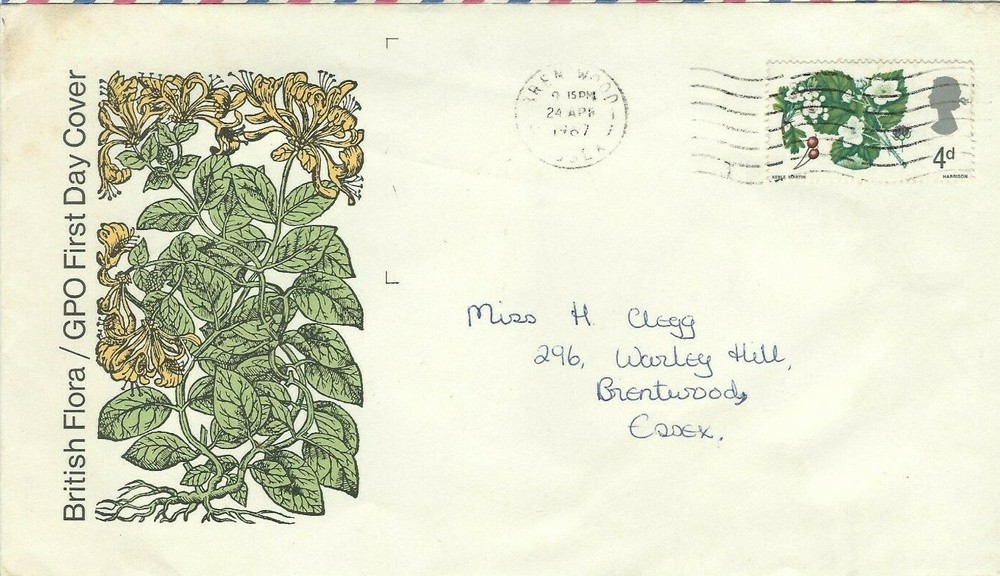 British Flora / GPO First Day Cover
15 PM
24 APR
1967
4d
KEBLE MARTIN
HARRISON
Miss H. Clegg
296, Warley Hill,
Brentwood,
Essex.